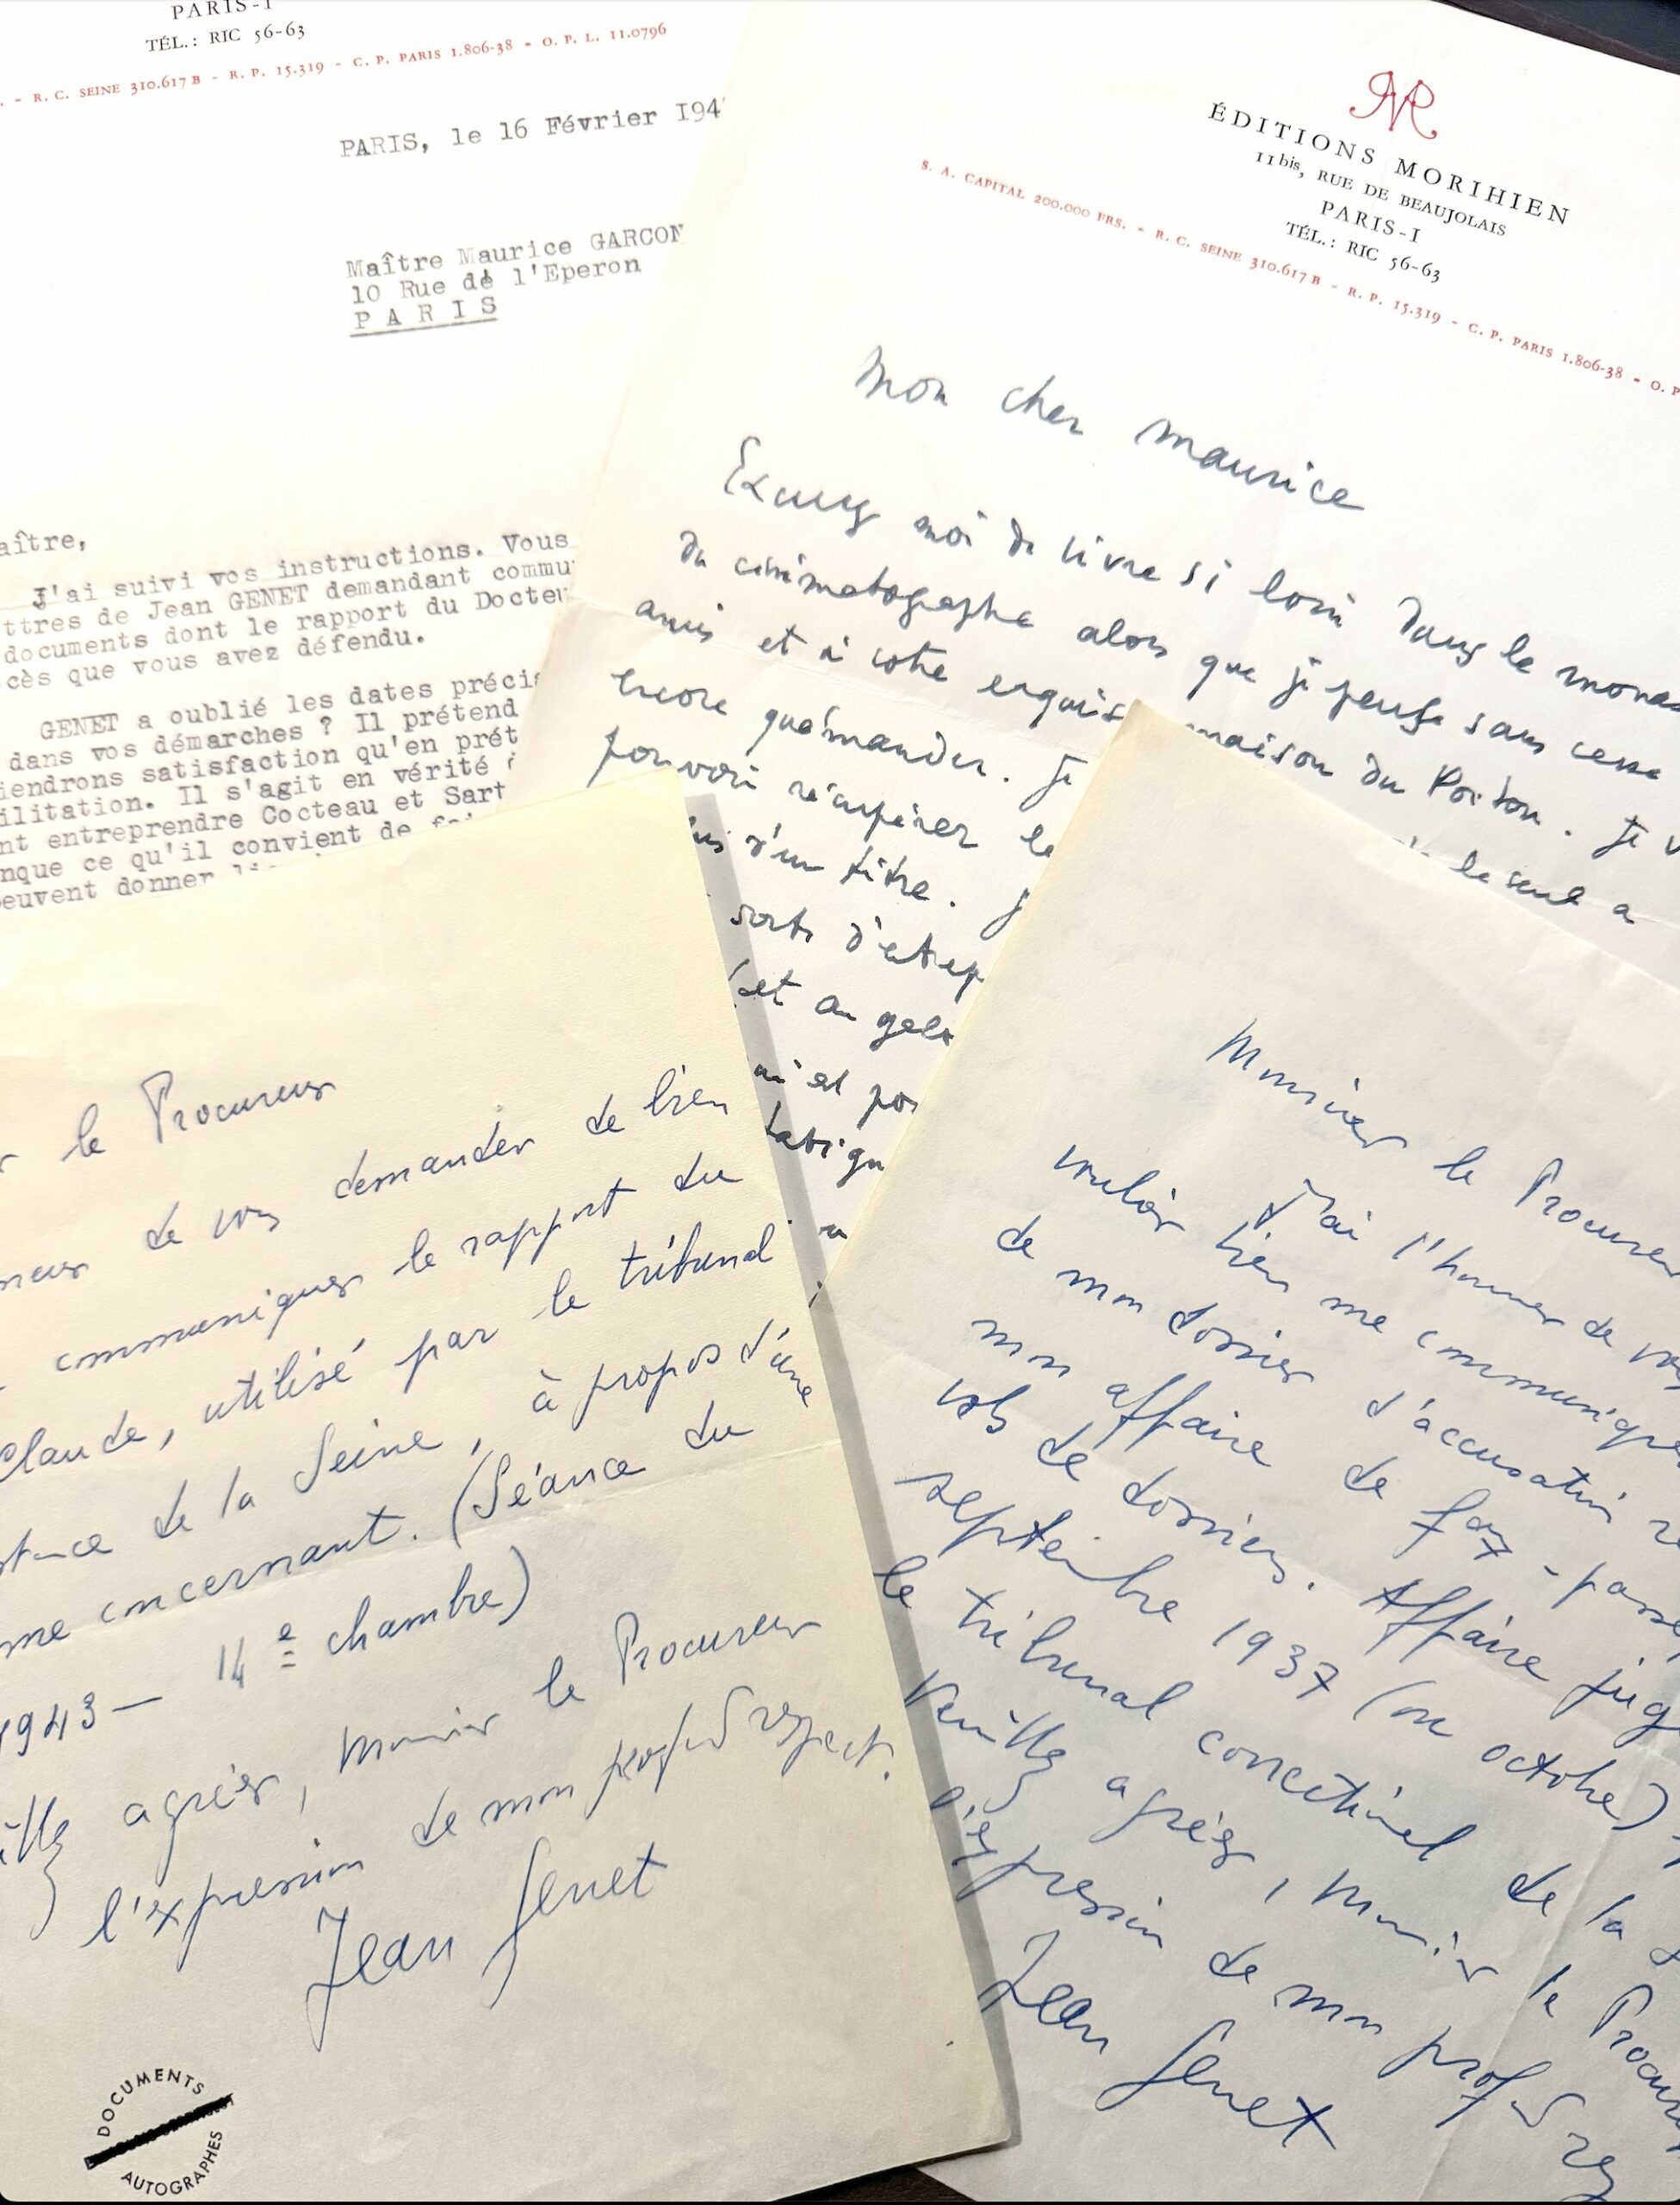 PARIS-I
TÉL.: RIC 56-63
- R. C. SEINE 310.617 B - R. P. 15.319 - C. P. PARIS 1.806-38 - O. P. L. 11.0796
PARIS, le 16 Février 194
Maître Maurice GARCON
10 Rue de l'Eperon
PARIS
aître,
J'ai suivi vos instructions. Vous
ttres de Jean GENET demandant commu
documents dont le rapport du Docteu
cès que vous avez défendu.
GENET a oublié les dates préci
dans vos démarches ? Il prétend
iendrons satisfaction qu'en prét
ilitation. Il s'agit en vérité
nt entreprendre Cocteau et Sart
nque ce qu'il convient de
euvent donner
ÉDITIONS MORIHIEN
11bis, RUE DE BEAUJOLAIS
PARIS-I
TÉL.: RIC 56-63
S. A. CAPITAL 200.000 FRS. - R. C. SEINE 310.617 B - R. P. 15.319 - C. P. PARIS 1.806-38 - O. P
Mon cher Maurice
Excusez moi de vivre si loin dans le
du cinématographe alors que je pense sans cesse
amis et à votre exquise maison du Poitou. Je v
encore quémander. Je le seul a
pouvoir récupérer le
d'un titre. J
sorte d'
et au
est
r le Procureur
neur de vous demander de bien
communiquer le rapport du
Claude, utilisé par le tribunal
stance de la Seine, à propos d'une
me concernant. (Séance du
1943 - 14e chambre)
agréer, Monsieur le Procureur
l'expression de mon profond respect.
Jean Genet
Monsieur le Procureur
J'ai l'honneur de vous
vouloir bien me communiquer
de mon dossier d'accusation
mon affaire de faux-passe
vols de dossiers. Affaire jug
septembre 1937 (ou octobre)
le tribunal correctionnel de la S
Veuillez agréer, Monsieur le Procur
l'expression de mon profond res
Jean Genet
DOCUMENTS
AUTOGRAPHES